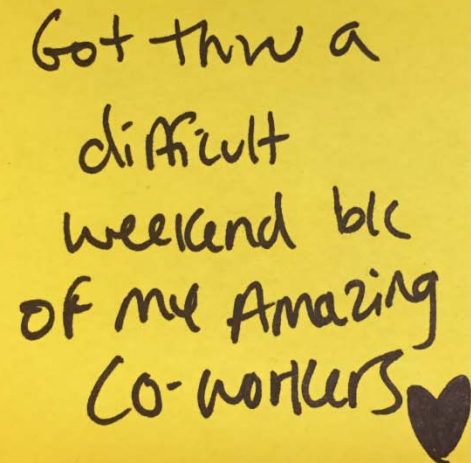 Got thru a
difficult
weekend b/c
of my Amazing
Co-workers